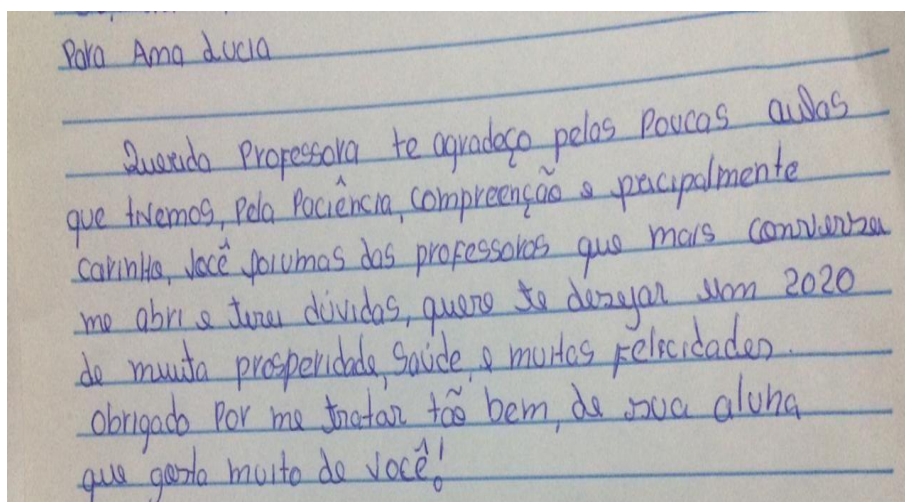 Para Ana Lucia
Querida Professora te agradeço pelas Poucas aulas
que tivemos, Pela Paciência, compreenção e pacipalmente
carinho, você foi umas das professoras que mais conversei
me abri e tirei dúvidas, quero te dezejar um 2020
de muita prosperidade, Saúde, e muitas Felicidades.
Obrigado Por me tratar tão bem, de sua aluna
que gosta muito de você!